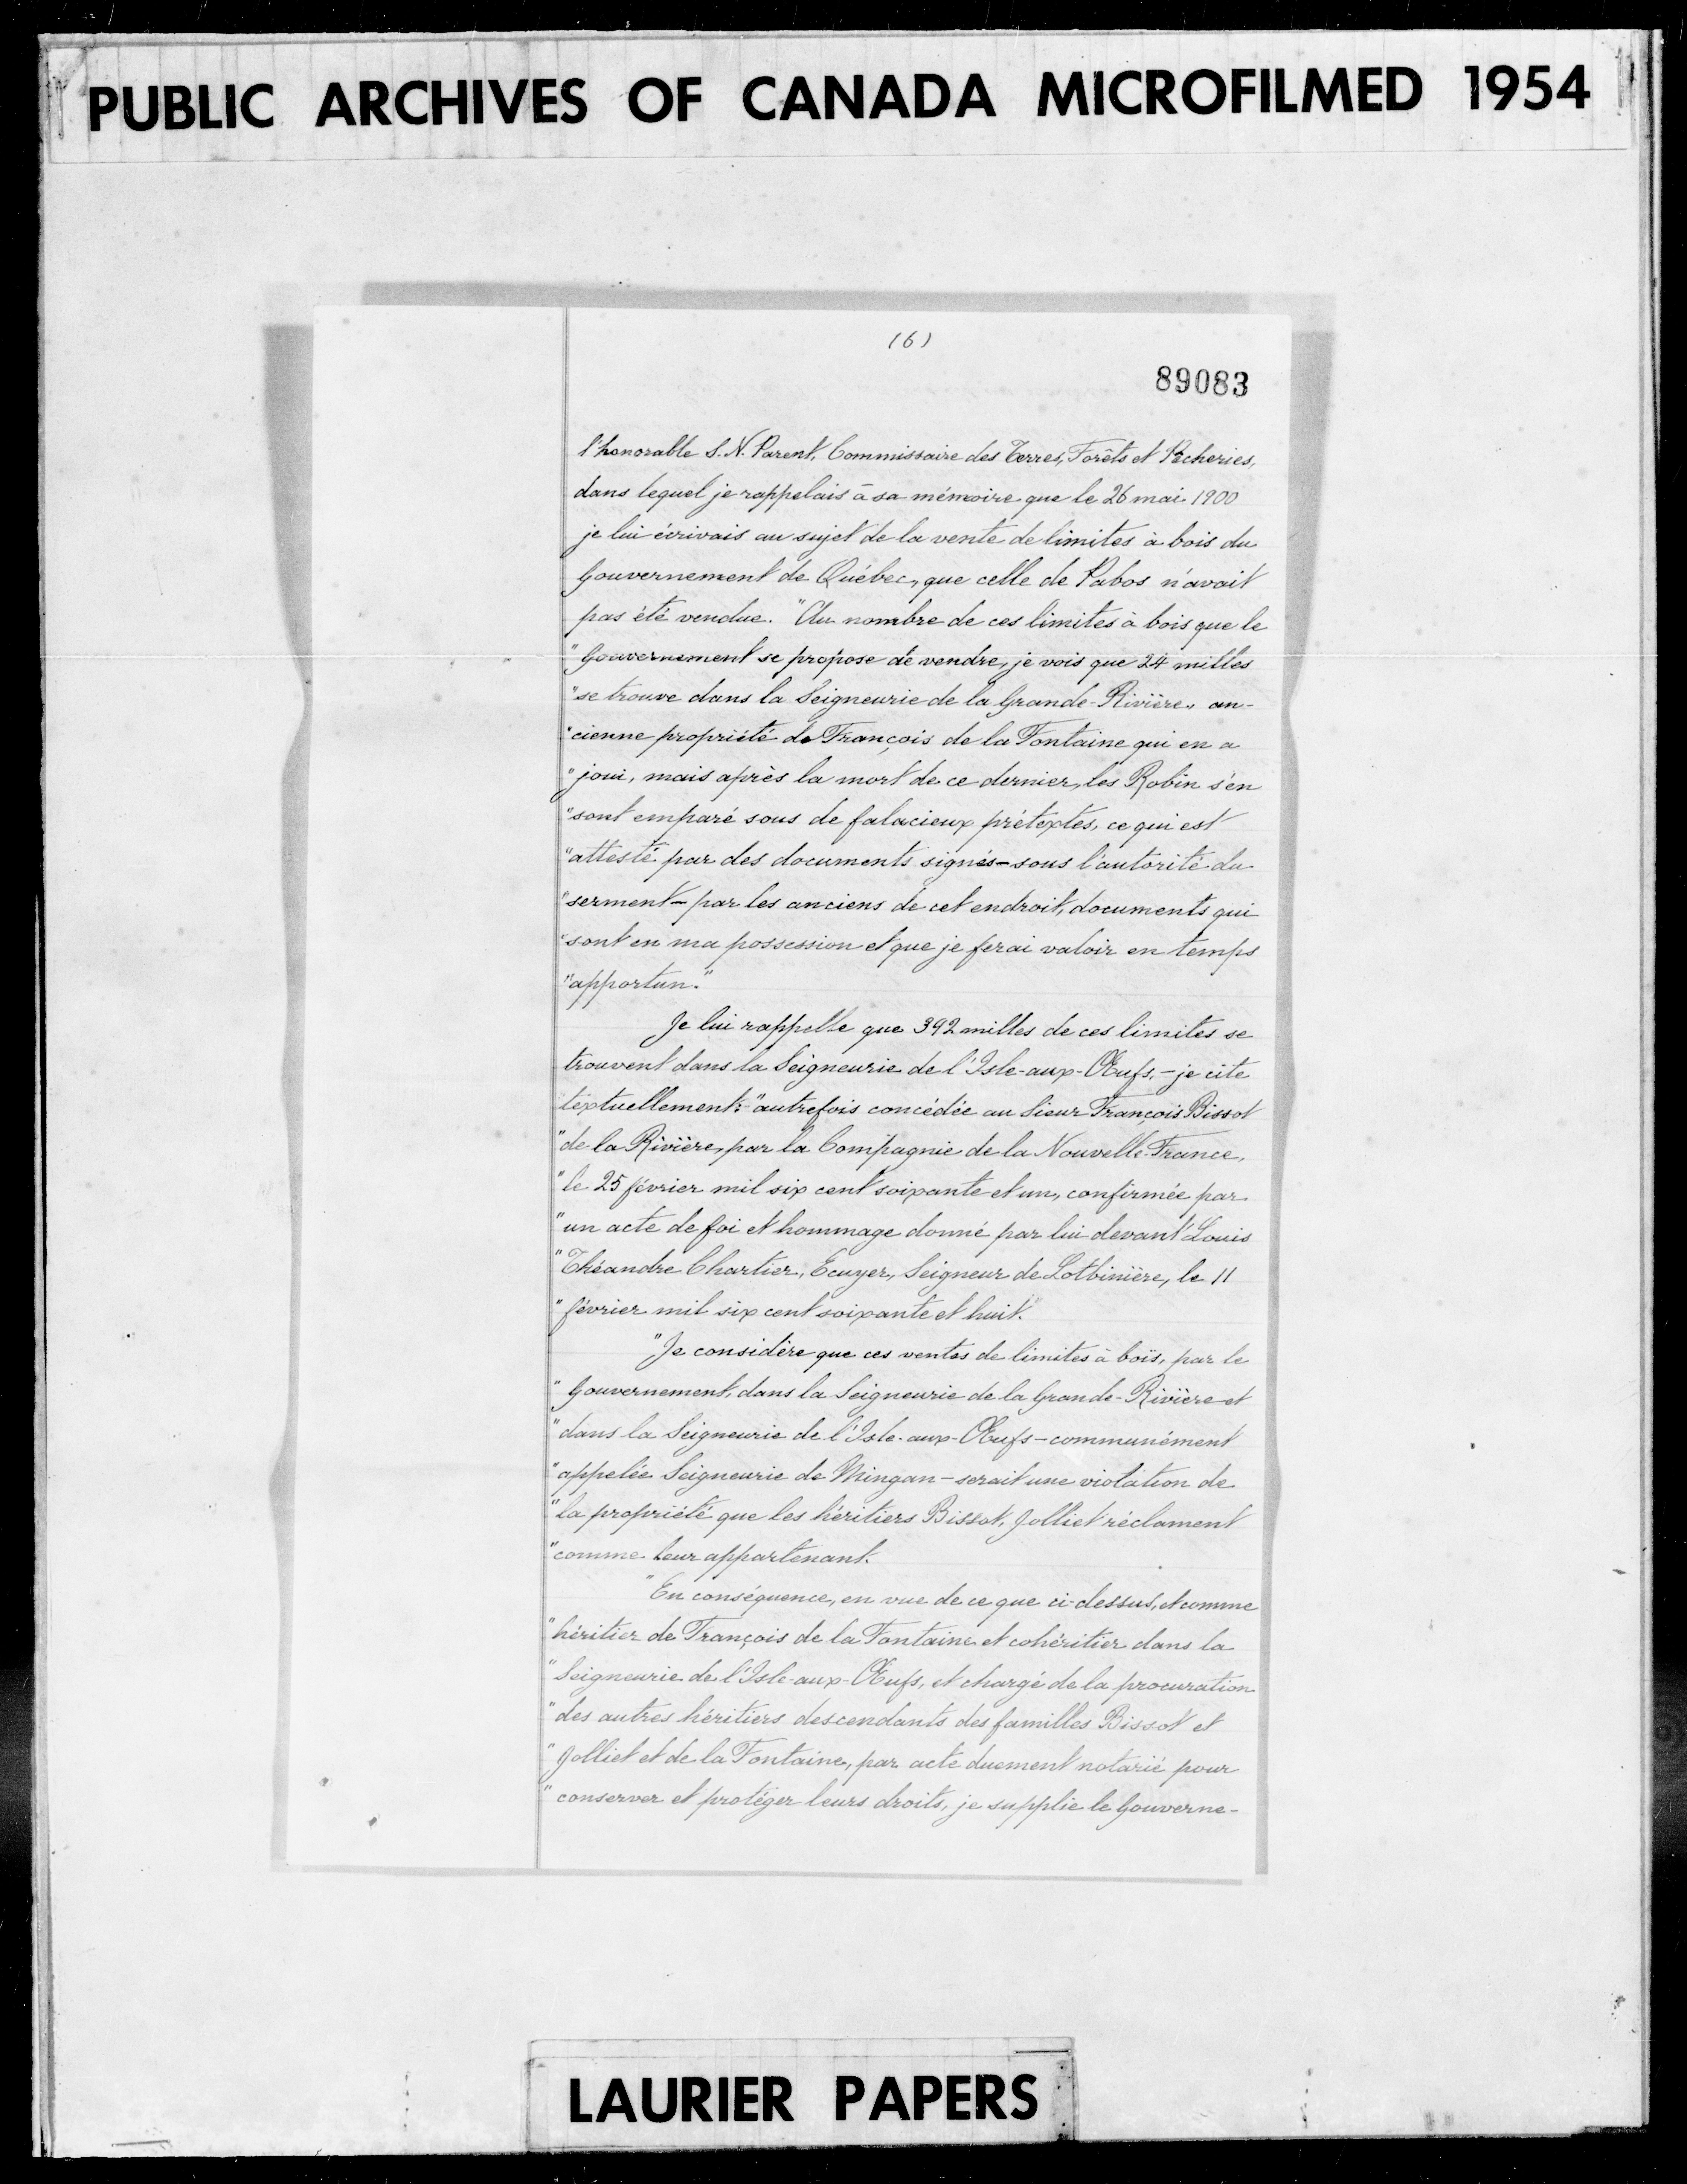 PUBLIC ARCHIVES OF CANADA MICROFILMED 1954
(6)
89083
l'honorable S. N. Parent, Commissaire des Terres, Forêts et Pêcheries,
dans lequel je rappelais à sa mémoire que le 26 mai 1900
je lui écrivais au sujet de la vente de limites à bois du
Gouvernement de Québec, que celle de Pabos n'avait
pas été vendue. "Au nombre de ces limites à bois que le
"Gouvernement se propose de vendre, je vois que 24 milles
"se trouve dans la Seigneurie de la Grande-Rivière, an-
"cienne propriété de François de la Fontaine qui en a
"joui, mais après la mort de ce dernier, les Robin s'en
"sont emparé sous de falacieux prétextes, ce qui est
"attesté par des documents signés - sous l'autorité du
"serment - par les anciens de cet endroit, documents qui
"sont en ma possession et que je ferai valoir en temps
"apportun."
Je lui rappelle que 392 milles de ces limites se
trouvent dans la Seigneurie de l'Isle-aux-Œufs, - je cite
textuellement: "autrefois concédée au Sieur François Bissot
"de la Rivière, par la Compagnie de la Nouvelle-France,
"le 25 février mil six cent soixante et un, confirmée par
"un acte de foi et hommage donné par lui devant Louis
"Théandre Chartier, Ecuyer, Seigneur de Lotbinière, le 11
"février mil six cent soixante et huit."
"Je considère que ces ventes de limites à bois, par le
"Gouvernement, dans la Seigneurie de la Grande-Rivière et
"dans la Seigneurie de l'Isle-aux-Œufs - communément
"appelée Seigneurie de Mingan - serait une violation de
"la propriété que les héritiers Bissot, Jolliet réclament
"comme leur appartenant.
"En conséquence, en vue de ce que ci-dessus, et comme
"héritier de François de la Fontaine et cohéritier dans la
"Seigneurie de l'Isle-aux-Œufs, et chargé de la procuration
"des autres héritiers descendants des familles Bissot et
"Jolliet et de la Fontaine, par acte duement notarié pour
"conserver et protéger leurs droits, je supplie le Gouverne-
LAURIER PAPERS